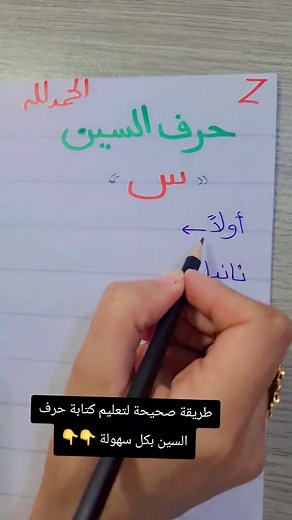 الحمد لله Z
حرف السين
« س »
أولاً ←
طريقة صحيحة لتعليم كتابة حرف
السين بكل سهولة 👇👇